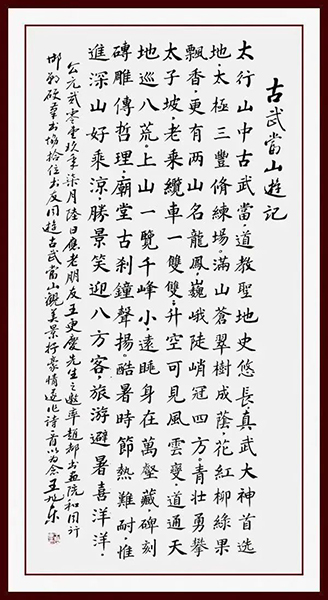 古武當山遊記
太行山中古武當·道教聖地史悠長真武大神首選
地·太極三豐脩練場·滿山蒼翠樹成蔭·花紅柳綠果
飄香·更有兩山名龍鳳·巍峨陡峭冠四方·青壯勇攀
太子坡·老乘纜車一雙雙·升空可見風雲變·道通天
地巡八荒·上山一覽千峰小·遠眺身在萬壑藏碑刻
磚雕傳哲理·廟堂古剎鐘聲揚·酷暑時節熱難耐·惟
進深山好乘涼·勝景笑迎八方客·旅游避暑喜洋洋·
公元貳零壹玖年柒月陸日應老朋友王更慶先生之邀率趙都書画院和同行
邯鄲硬筆書協拾位書友同遊古武當山觀美景抒豪情遂作詩一首以為念王旭東